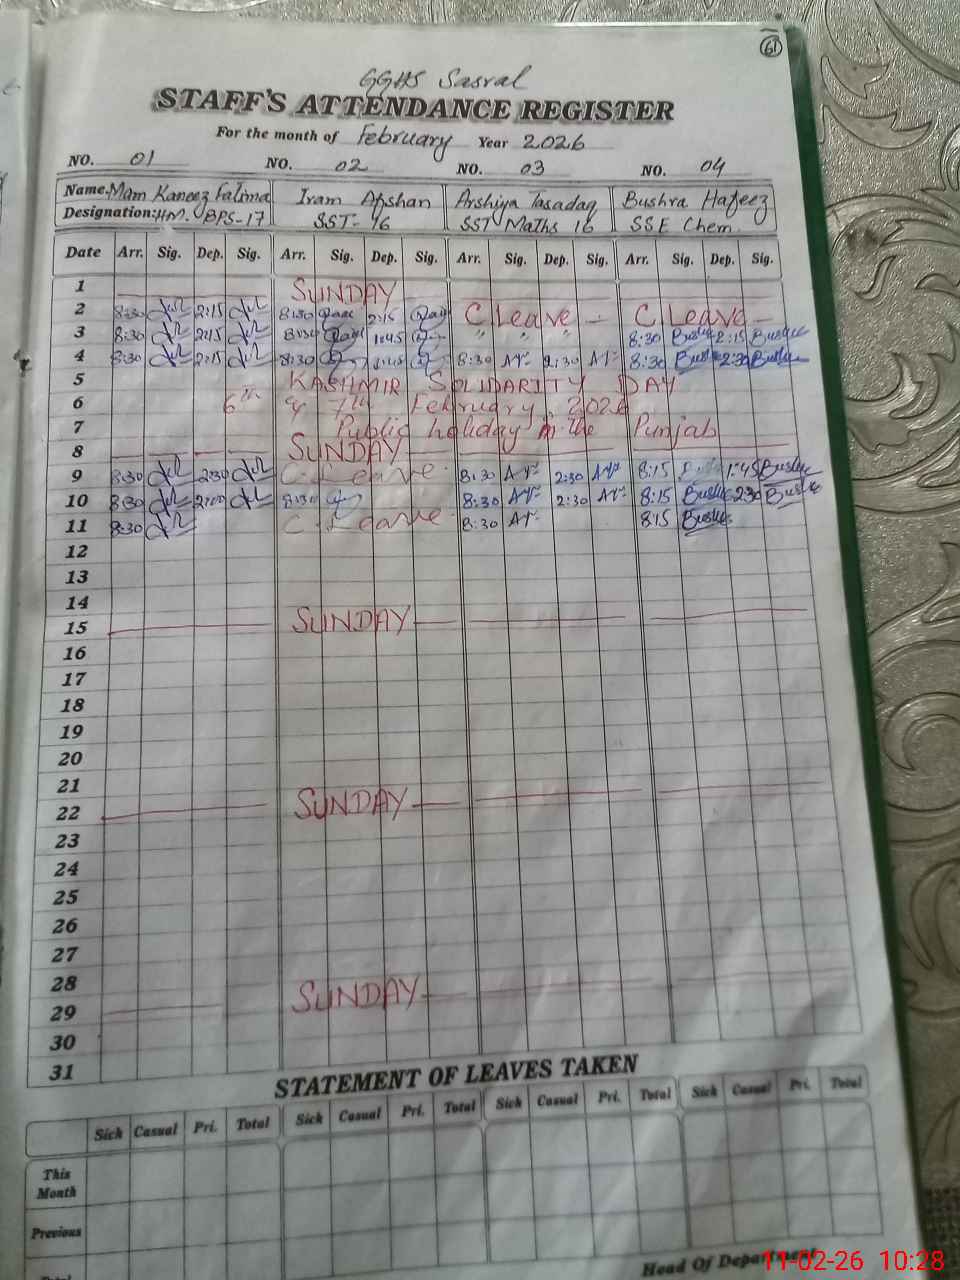 61
GGHS Sasral
STAFF'S ATTENDANCE REGISTER
For the month of February Year 2026
NO. 01 NO. 02 NO. 03 NO. 04
Name. Mam Kaneez Fatima Iram Afshan Arshiya Tasadaq Bushra Hafeez
Designation: HM. BPS-17 SST- 16 SST Maths 16 SSE Chem.
Date Arr. Sig. Dep. Sig. Arr. Sig. Dep. Sig. Arr. Sig. Dep. Sig. Arr. Sig. Dep. Sig.
1 SUNDAY
2 8:30 2:15 8:30 2:15 C Leave - C Leave -
3 8:30 2:15 8:30 1:45 " " " 8:30 Bushra 2:15 Bushra
4 8:30 2:15 8:30 1:45 8:30 2:30 8:30 Bushra 2:30 Bushra
5 KASHMIR SOLIDARITY DAY
6 6th & 7th February, 2026
7 Public holiday in the Punjab
8 SUNDAY
9 8:30 2:30 C Leave 8:30 2:30 8:15 1:45 Bushra
10 8:30 2:00 8:30 8:30 2:30 8:15 Bushra 2:30 Bushra
11 8:30 C Leave 8:30 8:15 Bushra
12
13
14
15 SUNDAY
16
17
18
19
20
21
22 SUNDAY
23
24
25
26
27
28
29 SUNDAY
30
31
STATEMENT OF LEAVES TAKEN
Sick Casual Pri. Total Sick Casual Pri. Total Sick Casual Pri. Total Sick Casual Pri. Total
This Month
Previous
Total
Head Of Department
11-02-26 10:28